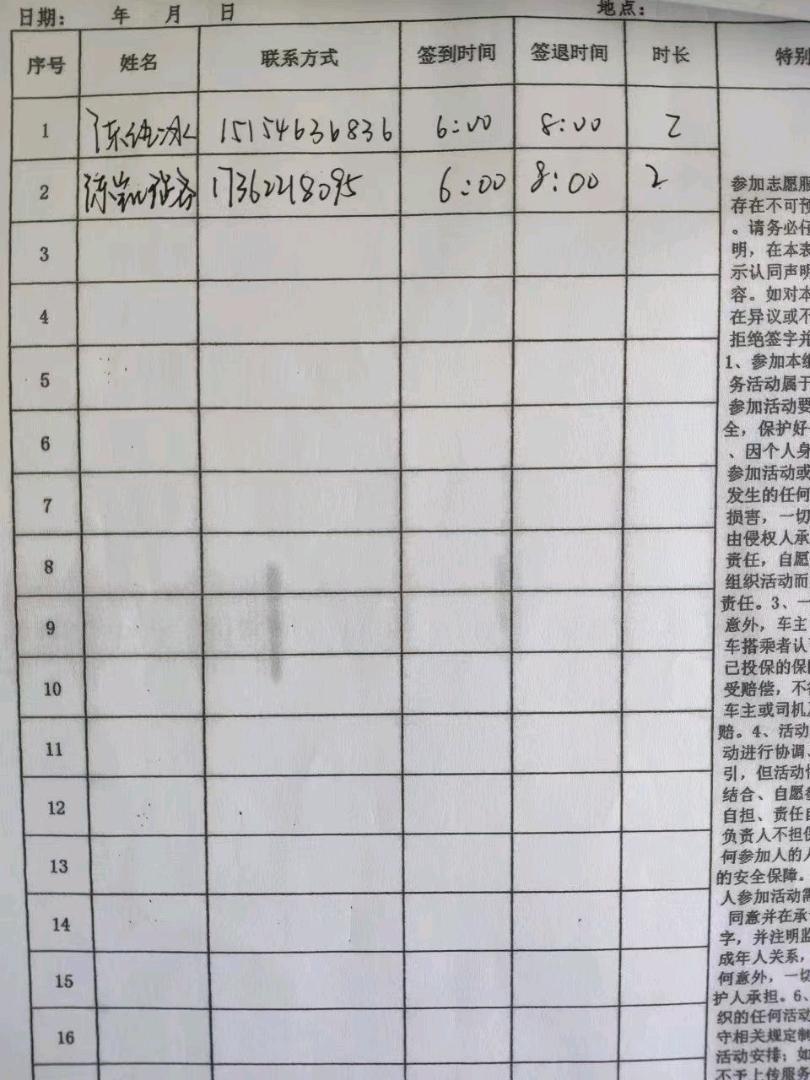 日期： 年 月 日 地点：
序号 姓名 联系方式 签到时间 签退时间 时长 特别
1 15154636836 6:00 8:00 2
2 17362218095 6:00 8:00 2
3
4
5
6
7
8
9
10
11
12
13
14
15
16
参加志愿服
存在不可预
。请务必仔
明，在本表
示认同声明
容。如对本
在异议或不
拒绝签字并
1、参加本组
务活动属于
参加活动要
全，保护好
、因个人身
参加活动或
发生的任何
损害，一切
由侵权人承
责任，自愿
组织活动而
责任。3、一
意外，车主
车搭乘者认
已投保的保险
受赔偿，不得
车主或司机及
赔。4、活动
动进行协调、
引，但活动
结合、自愿参
自担、责任自
负责人不担保
何参加人的人
的安全保障。
人参加活动需
同意并在承
字，并注明监
成年人关系，
何意外，一切
护人承担。6、
织的任何活动
守相关规定制
活动安排；如
不予上传服务